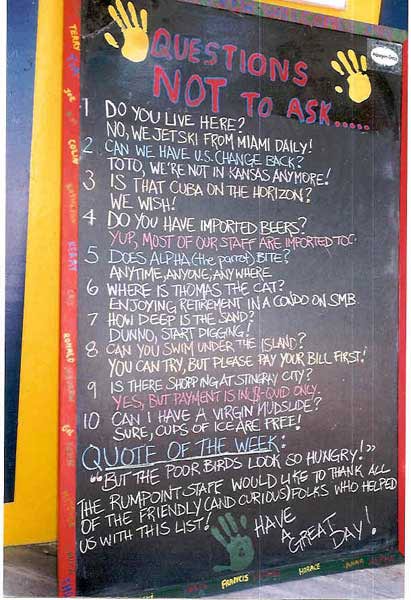 QUESTIONS
NOT TO ASK.....
1 DO YOU LIVE HERE?
NO, WE JETSKI FROM MIAMI DAILY!
2 CAN WE HAVE U.S. CHANGE BACK?
TOTO, WE'RE NOT IN KANSAS ANYMORE!
3 IS THAT CUBA ON THE HORIZON?
WE WISH!
4 DO YOU HAVE IMPORTED BEERS?
YUP, MOST OF OUR STAFF ARE IMPORTED TOO
5 DOES ALPHA (the parrot) BITE?
ANYTIME, ANYONE, ANYWHERE
6 WHERE IS THOMAS THE CAT?
ENJOYING RETIREMENT IN A CONDO ON SMB
7 HOW DEEP IS THE SAND?
DUNNO, START DIGGING!
8 CAN YOU SWIM UNDER THE ISLAND?
YOU CAN TRY, BUT PLEASE PAY YOUR BILL FIRST!
9 IS THERE SHOPPING AT STINGRAY CITY?
YES, BUT PAYMENT IS IN SQUID ONLY.
10 CAN I HAVE A VIRGIN MUDSLIDE?
SURE, CUPS OF ICE ARE FREE!
QUOTE OF THE WEEK:
"BUT THE POOR BIRDS LOOK SO HUNGRY!"
THE RUMPOINT STAFF WOULD LIKE TO THANK ALL
OF THE FRIENDLY (AND CURIOUS) FOLKS WHO HELPED
US WITH THIS LIST!
HAVE
A
GREAT
DAY!
TERRY
JOE
COLIN
KERRY
RONALD
FRANCIS
HORACE